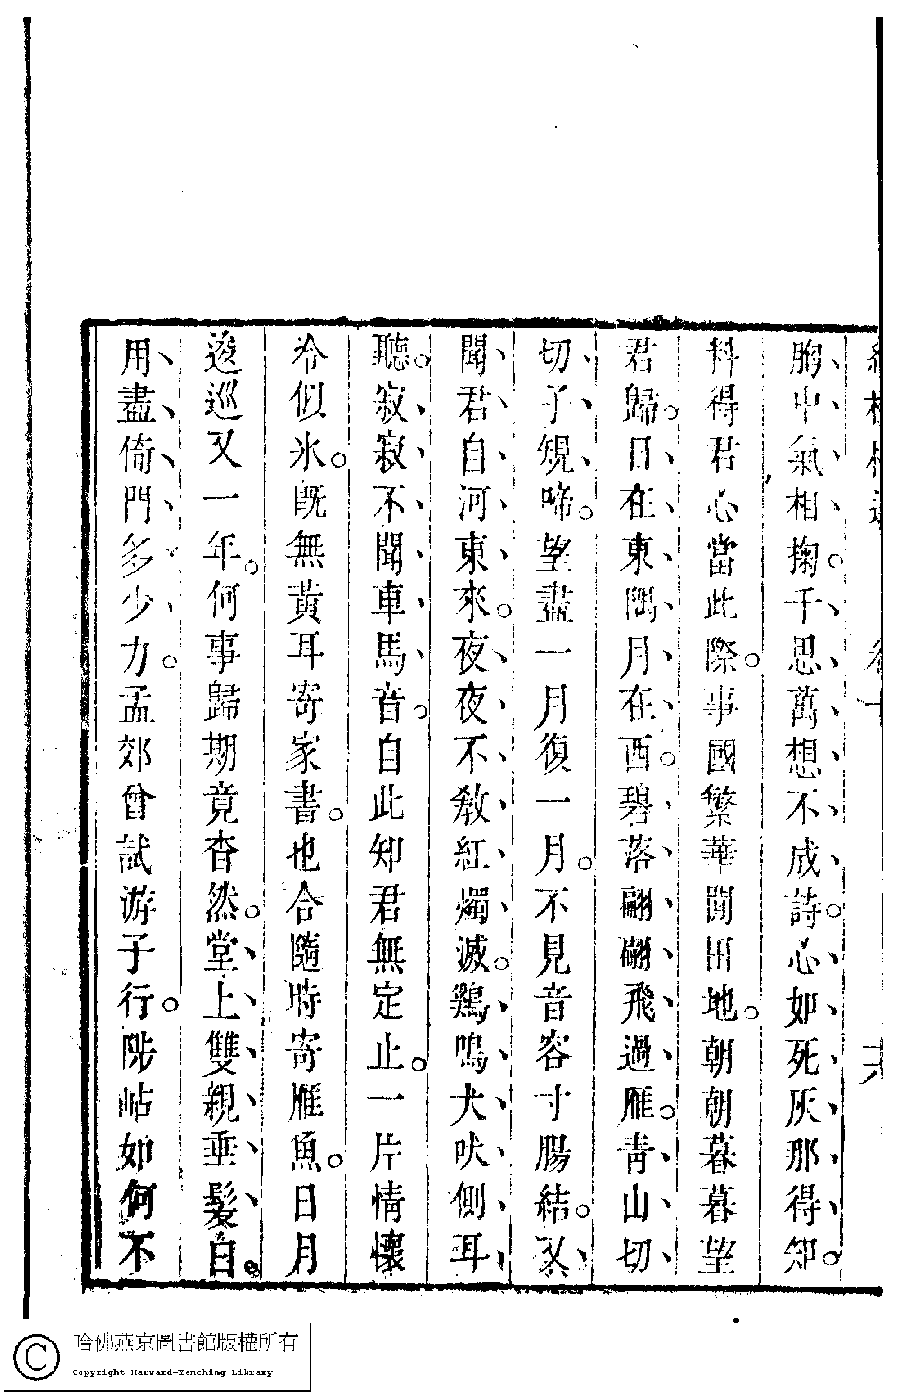 胸中氣相掬千思萬想不成詩心如死灰那得知
料得君心當此際事國繁華閒田地朝朝暮暮望
君歸日在東隅月在西碧落翩翩飛過雁青山切
切子規啼望盡一月復一月不見音容寸腸結又
聞君自河東來夜夜不教紅燭滅鷄鳴犬吠側耳
聽寂寂不聞車馬音自此知君無定止一片情懷
冷似氷旣無黃耳寄家書也合隨時寄雁魚日月
逡巡又一年何事歸期竟杳然堂上雙親垂髮白
用盡倚門多少力孟郊曾試游子行陟岵如何不
哈佛燕京圖書館版權所有
Copyright Harvard-Yenching Library